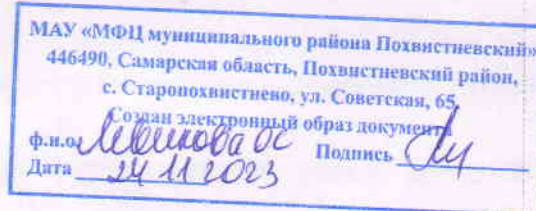 МАУ «МФЦ муниципального района Похвистневский»
446490, Самарская область, Похвистневский район,
с. Старопохвистнево, ул. Советская, 65
Создан электронный образ документа
ф.и.о. Левинова ОС Подпись
Дата 24 11 2023